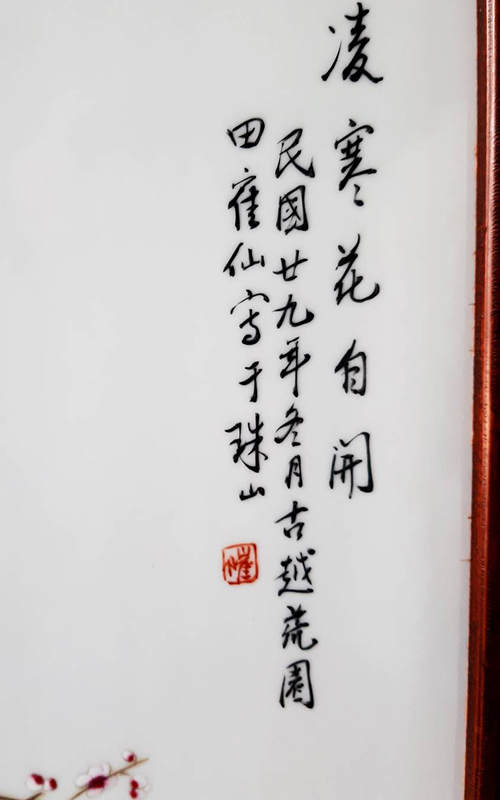 凌寒花自開
民國廿九年冬月古越荒園
田寉仙寫于珠山